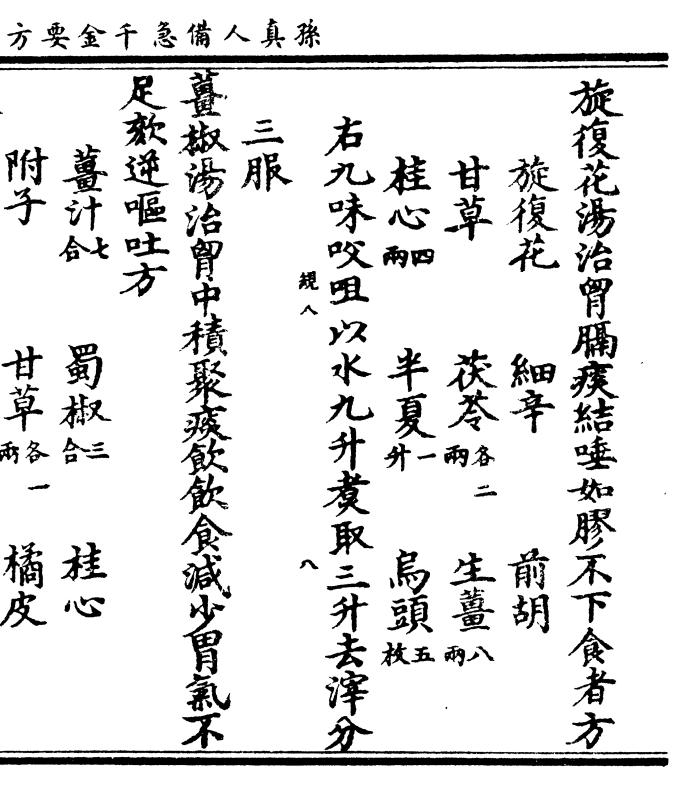 孫真人備急千金要方
旋復花湯治胷膈痰結唾如膠不下食者方
旋復花 細辛 前胡
甘草 茯苓各二兩 生薑八兩
桂心四兩 半夏一升 烏頭五枚
右九味㕮咀以水九升煑取三升去滓分
三服
薑椒湯治胷中積聚痰飲飲食減少胃氣不
足欬逆嘔吐方
薑汁七合 蜀椒三合 桂心
附子 甘草各一兩 橘皮